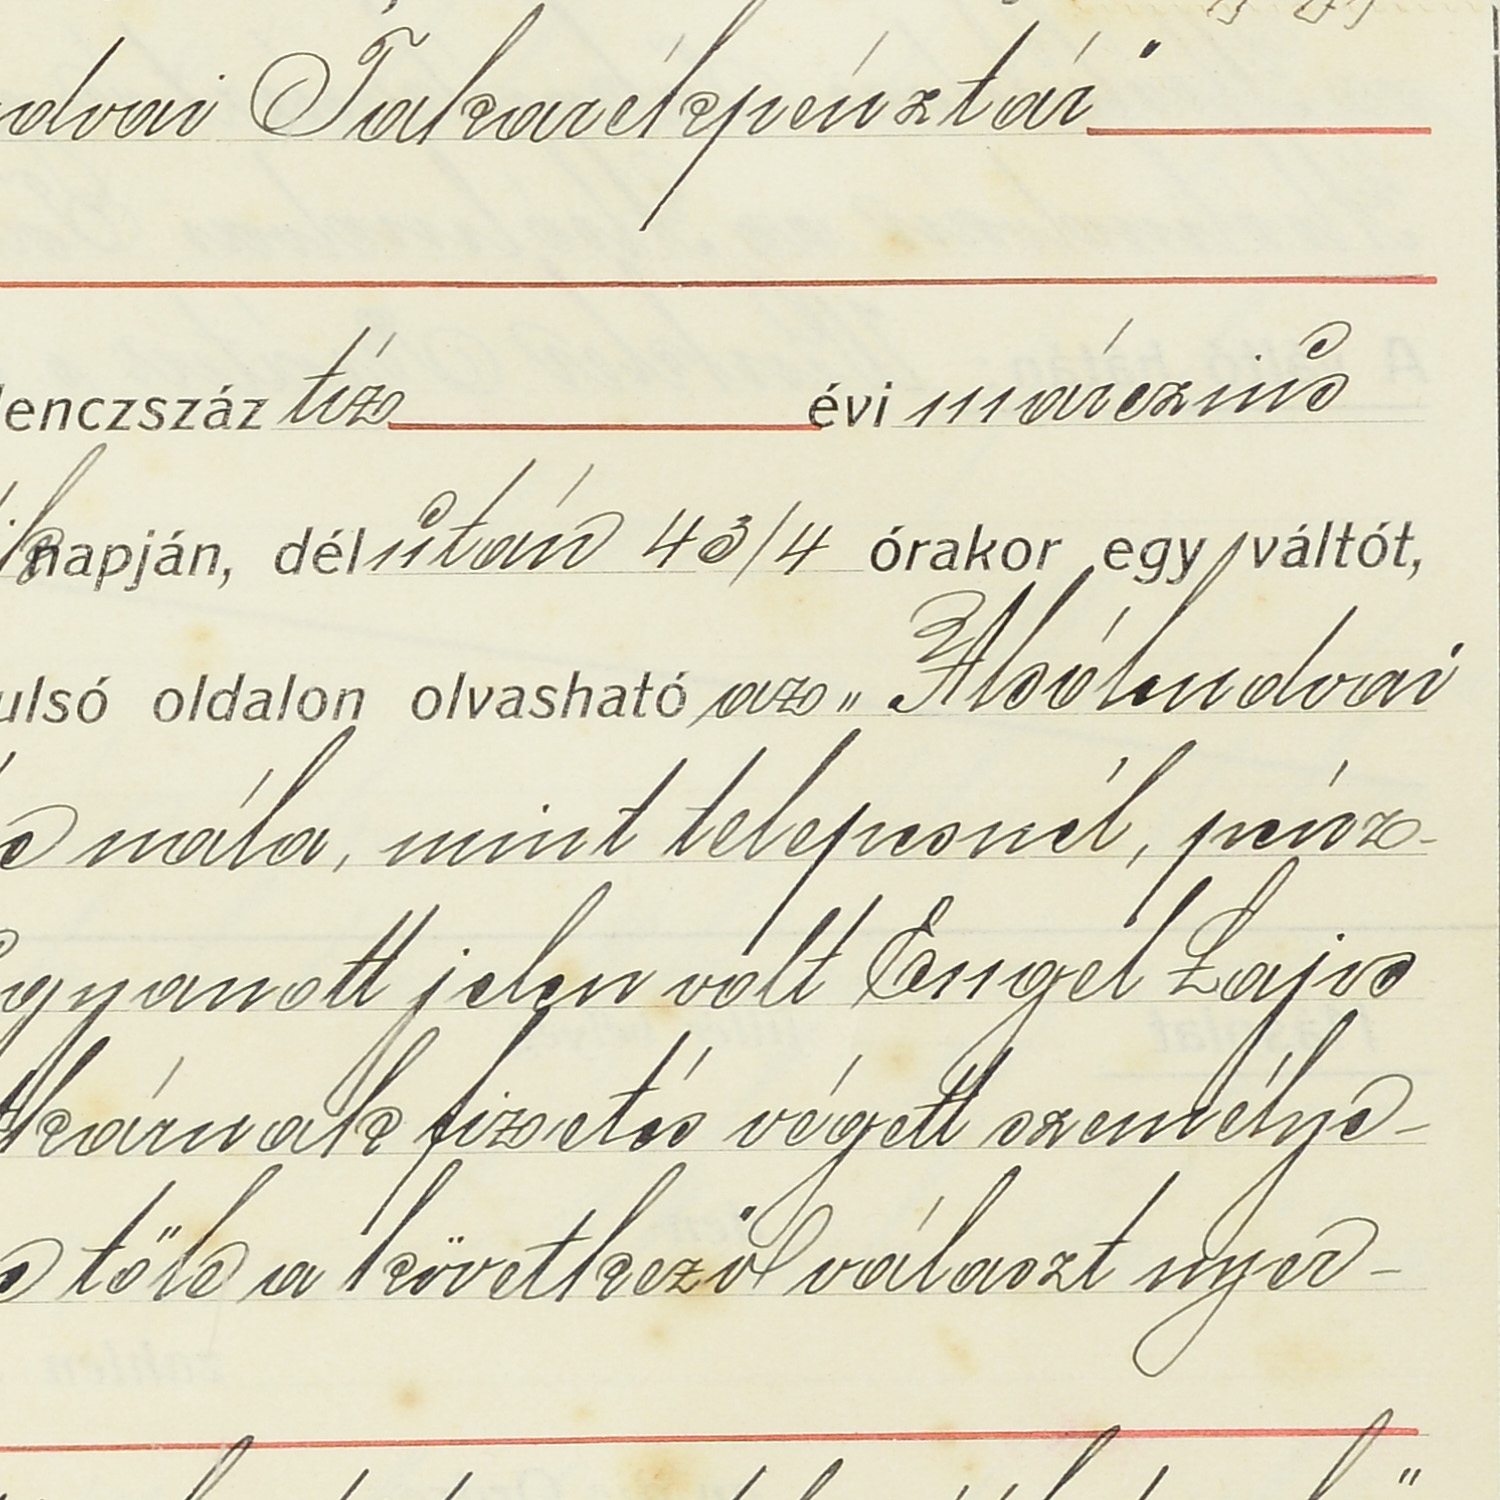 ndvai Takarékpénztár"
lenczszáz tíz évi márczius
ik napján, délután 4 3/4 órakor egy váltót,
ulsó oldalon olvasható az „Alsólendvai
nála, mint telepesnél, pénz-
ugyanott jelen volt Engel Lajos
fizetés végett személye-
tőle a következő választ nyer-